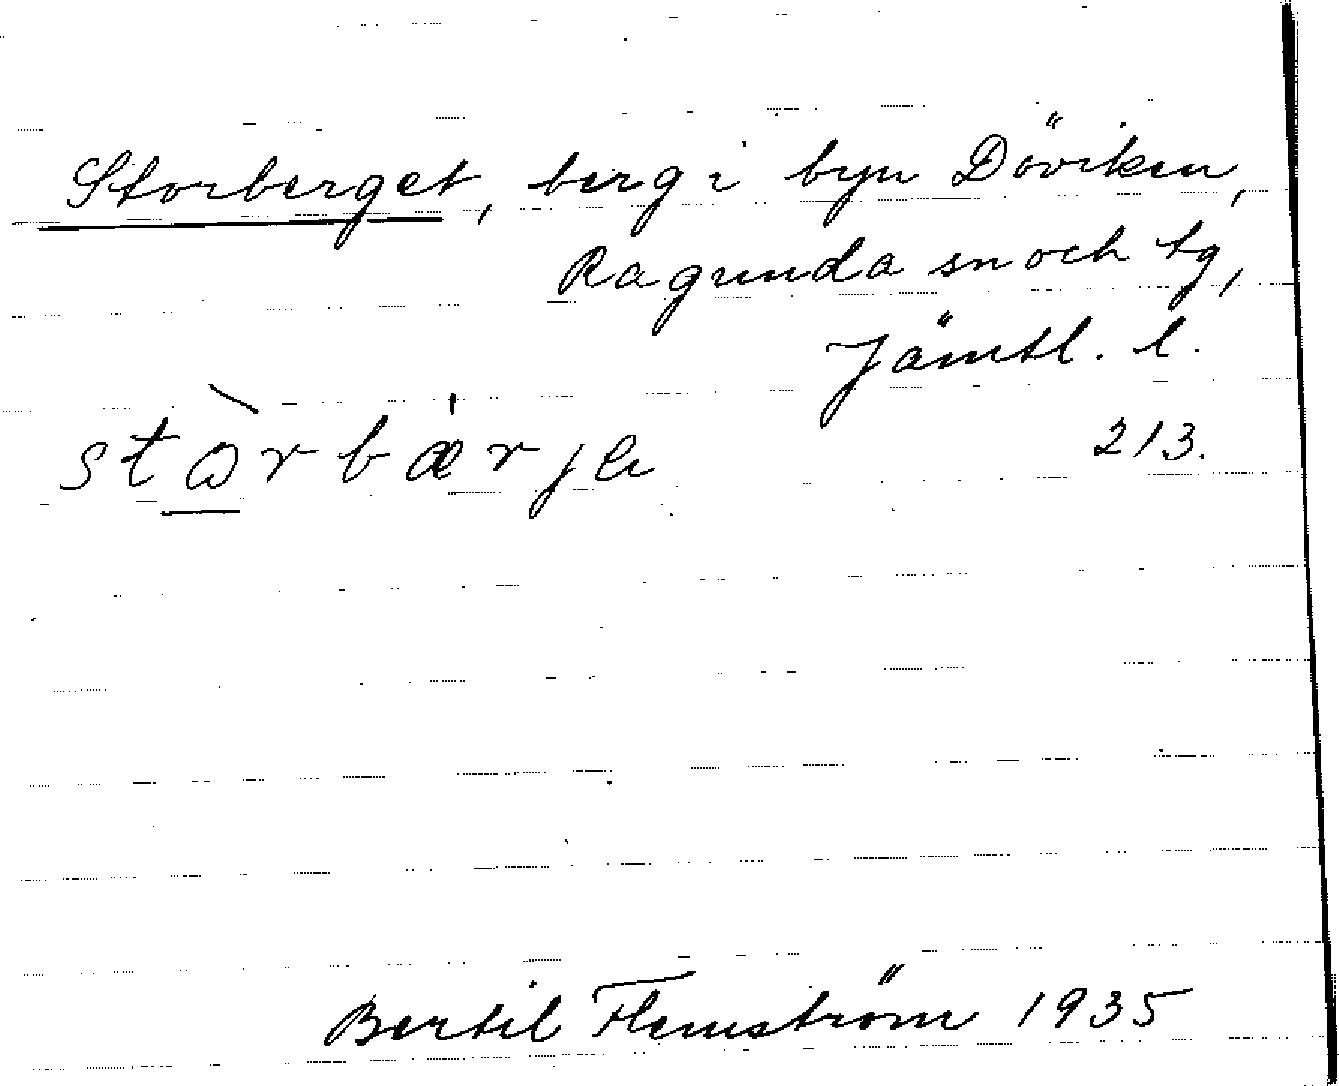 Storberget, berg i byn Döviken,
Ragunda sn och tg,
Jämtl. l.
213.
Bertil Flemström 1935